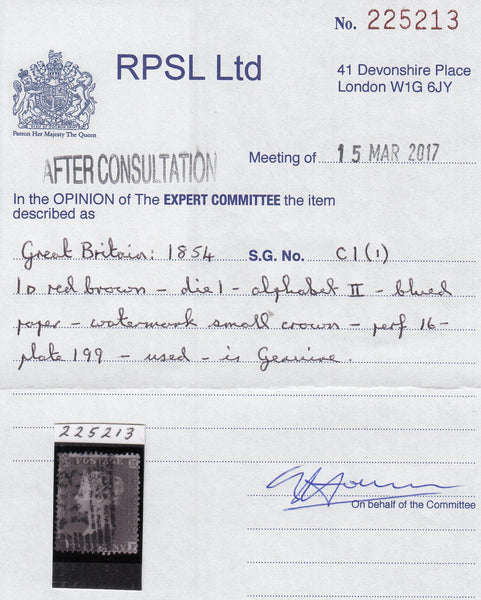 No. 225213
RPSL Ltd
41 Devonshire Place
London W1G 6JY
Patron Her Majesty The Queen
AFTER CONSULTATION
Meeting of 15 MAR 2017
In the OPINION of The EXPERT COMMITTEE the item
described as
Great Britain: 1854 S.G. No. C1(1)
1D red brown - die 1 - alphabet II - blued
paper - watermark small crown - perf 16 -
plate 199 - used - is Genuine.
225213
POSTAGE
On behalf of the Committee